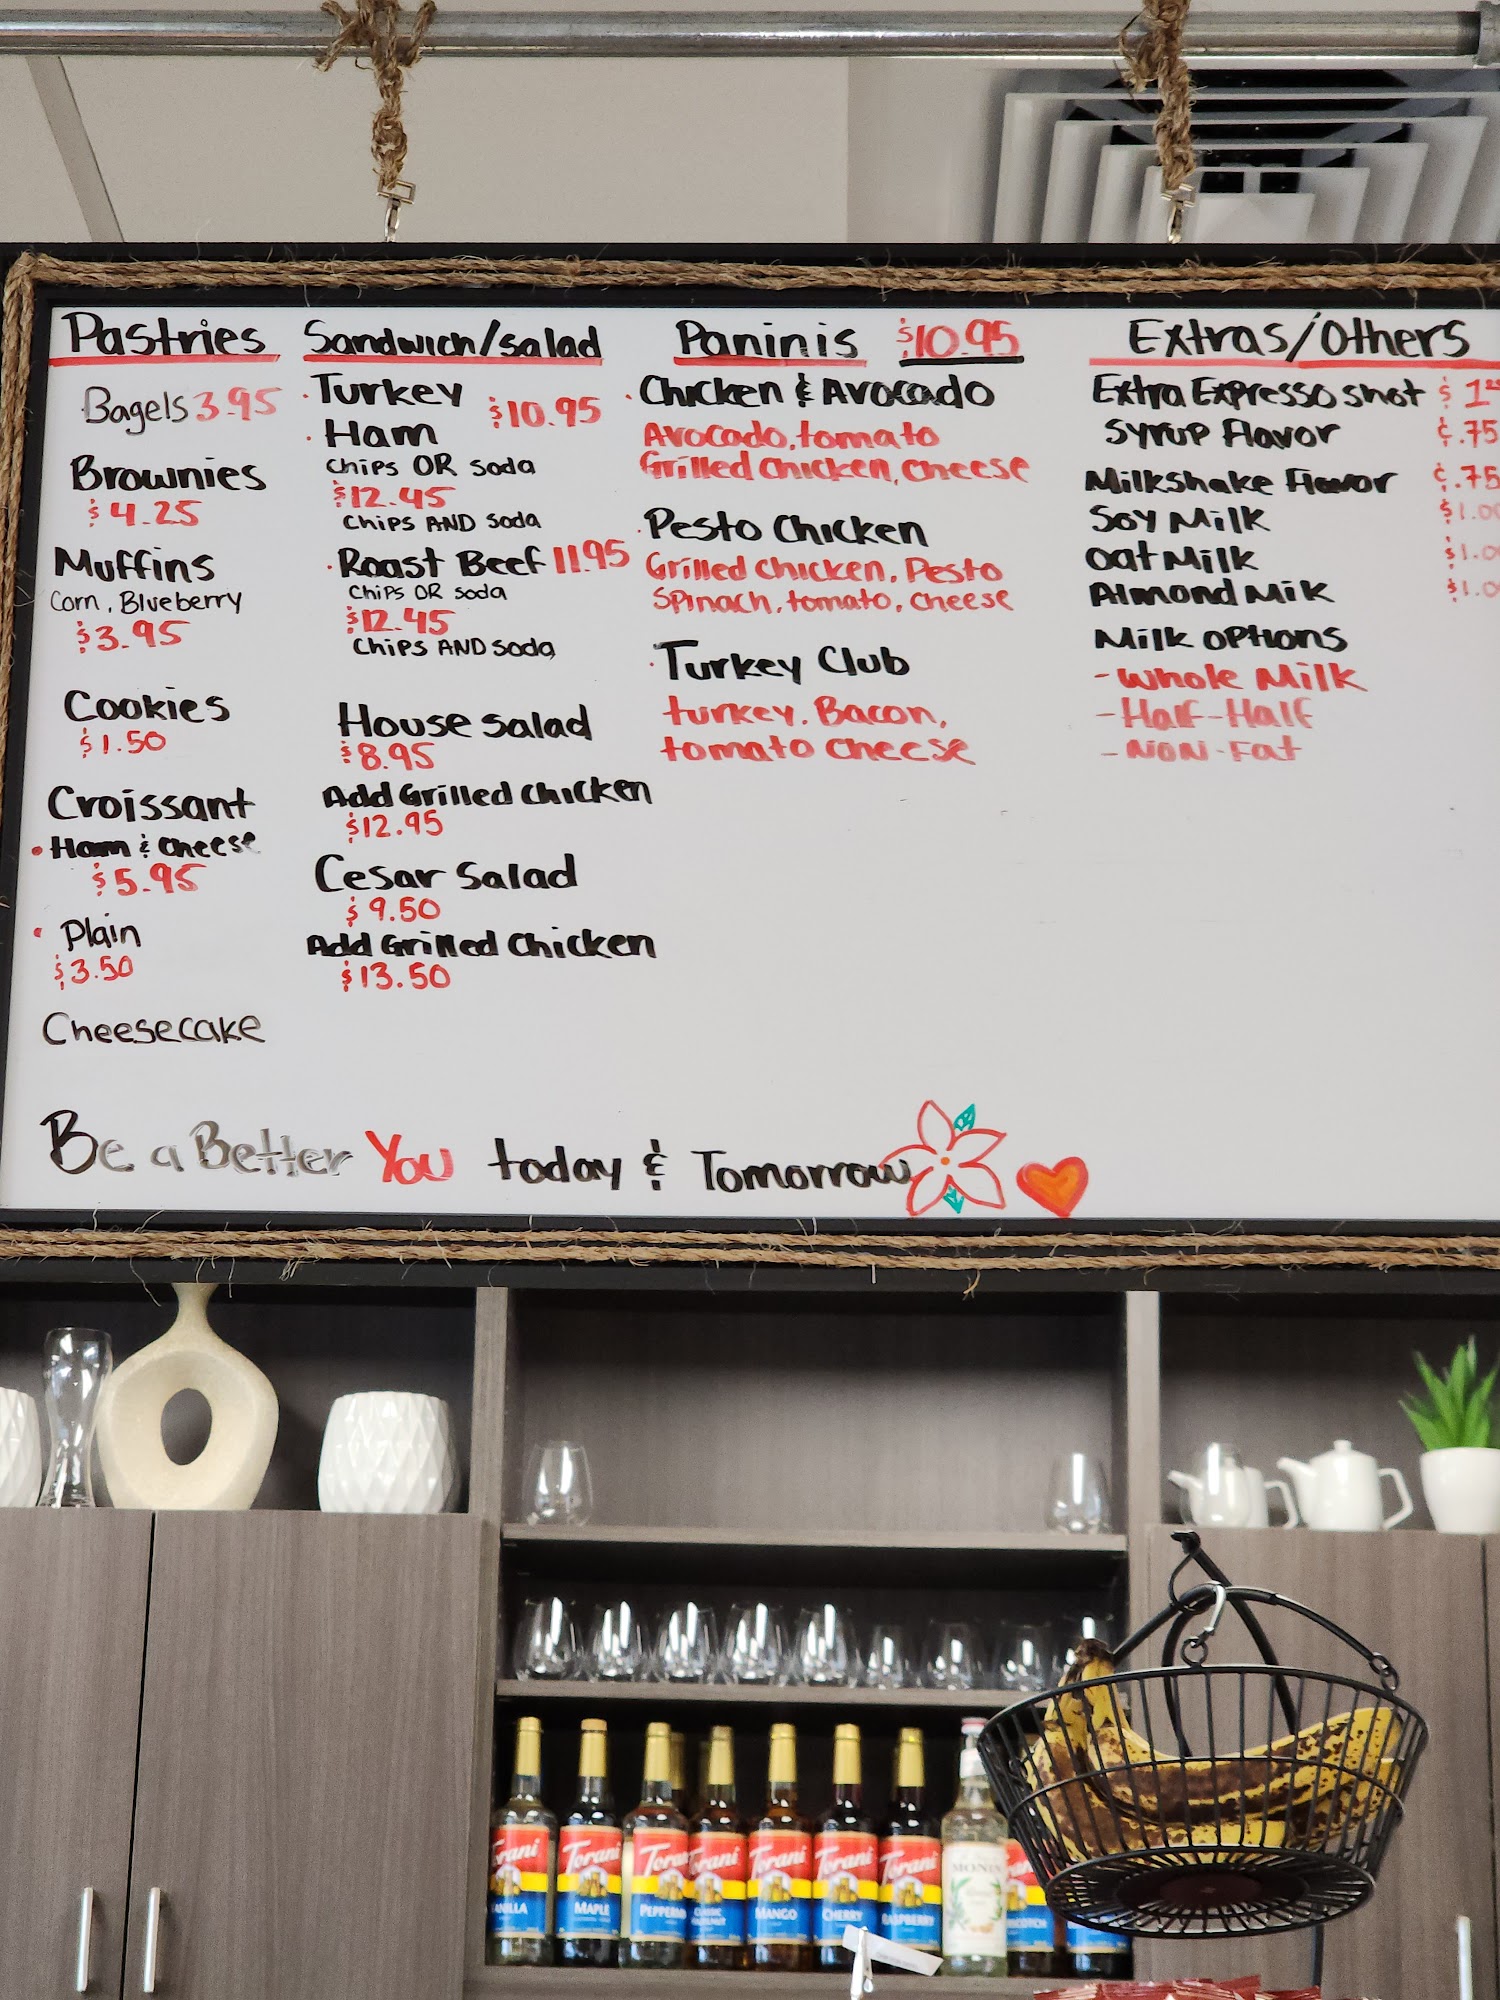 Pastries
Bagels 3.95
Brownies
$4.25
Muffins
Corn, Blueberry
$3.95
Cookies
$1.50
Croissant
• Ham & Cheese
$5.95
• Plain
$3.50
Cheesecake
Sandwich/Salad
• Turkey $10.95
• Ham
Chips OR Soda
$12.45
Chips AND Soda
• Roast Beef 11.95
Chips OR Soda
$12.45
Chips AND Soda
House Salad
$8.95
Add Grilled Chicken
$12.95
Cesar Salad
$9.50
Add Grilled Chicken
$13.50
Paninis $10.95
• Chicken & Avocado
Avocado, tomato
Grilled Chicken, Cheese
• Pesto Chicken
Grilled Chicken, Pesto
Spinach, tomato, cheese
• Turkey Club
turkey. Bacon,
tomato cheese
Extras/Others
Extra Expresso shot
Syrup Flavor ¢.75
Milkshake Flavor ¢.75
Soy Milk $1.00
Oat Milk $1.0
Almond Mik $1.0
Milk options
- Whole Milk
- Half-Half
- Non-Fat
Be a Better You today & Tomorrow
Torani Torani Torani Torani Torani Torani Torani MONIN
MAPLE MANGO CHERRY RASPBERRY